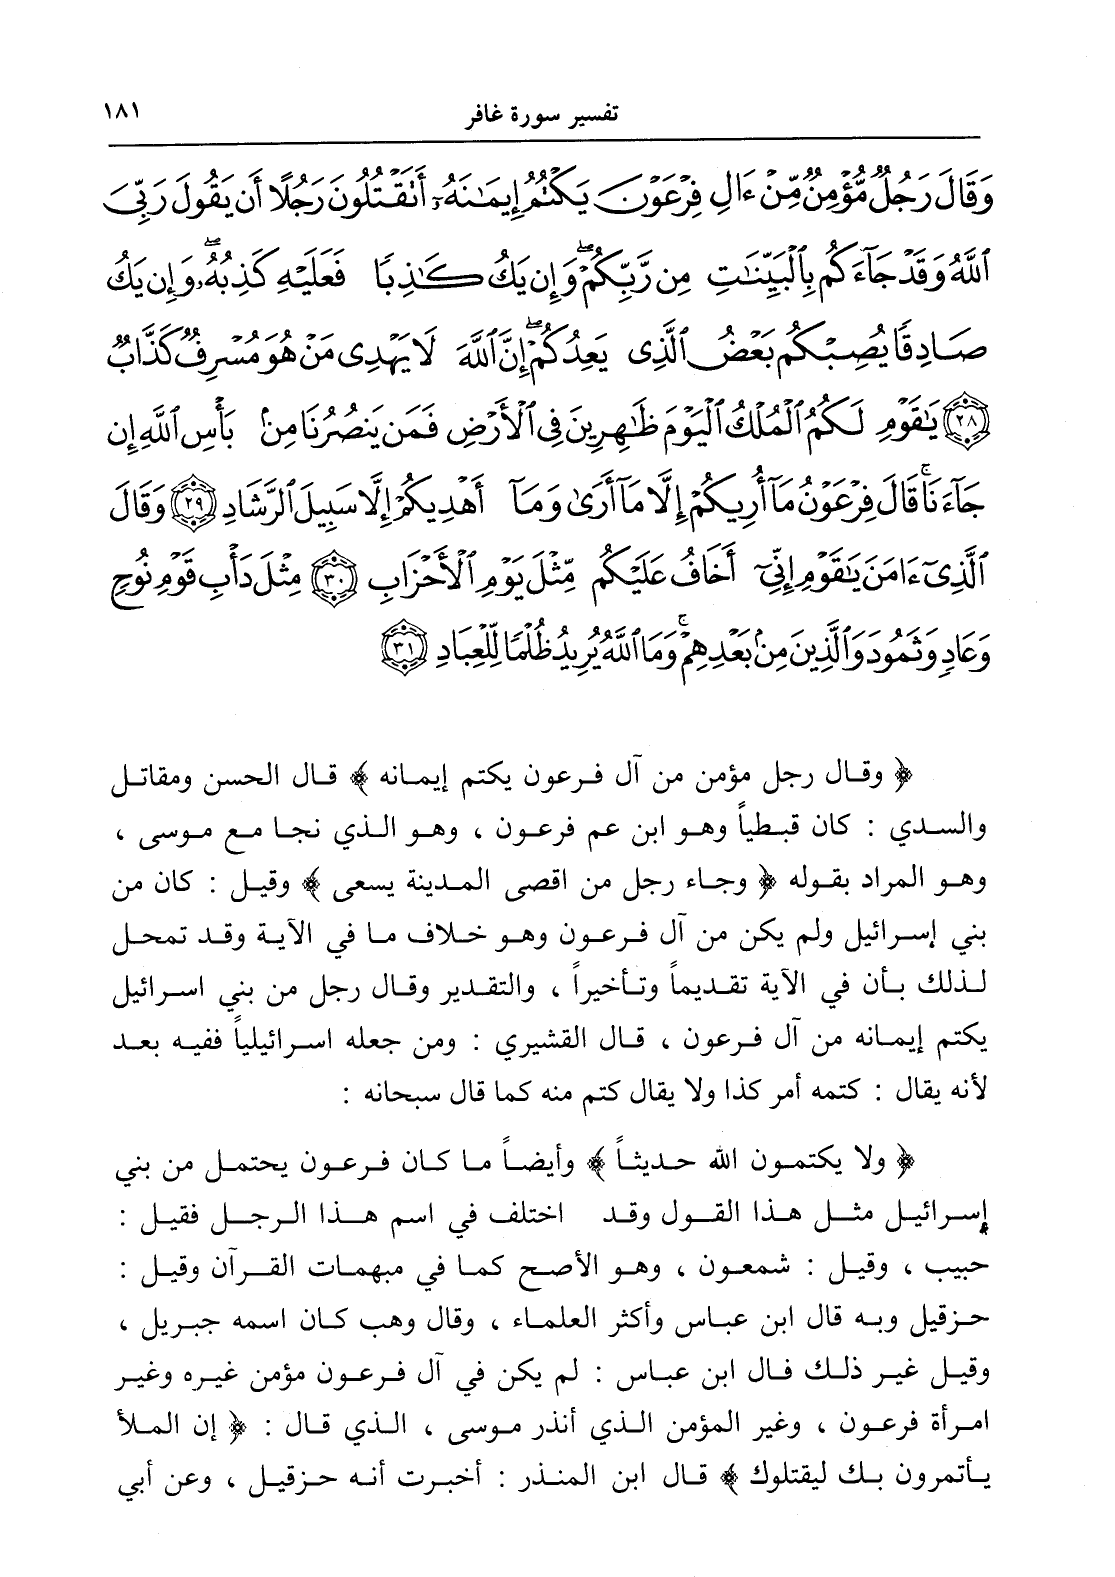 تفسير سورة غافر ١٨١
وَقَالَ رَجُلٌ مُّؤْمِنٌ مِّنْ ءَالِ فِرْعَوْنَ يَكْتُمُ إِيمَٰنَهُۥٓ أَتَقْتُلُونَ رَجُلًا أَن يَقُولَ رَبِّىَ
ٱللَّهُ وَقَدْ جَآءَكُم بِٱلْبَيِّنَٰتِ مِن رَّبِّكُمْ ۖ وَإِن يَكُ كَٰذِبًا فَعَلَيْهِ كَذِبُهُۥ ۖ وَإِن يَكُ
صَادِقًا يُصِبْكُم بَعْضُ ٱلَّذِى يَعِدُكُمْ ۖ إِنَّ ٱللَّهَ لَا يَهْدِى مَنْ هُوَ مُسْرِفٌ كَذَّابٌ
﴿٢٨﴾ يَٰقَوْمِ لَكُمُ ٱلْمُلْكُ ٱلْيَوْمَ ظَٰهِرِينَ فِى ٱلْأَرْضِ فَمَن يَنصُرُنَا مِنۢ بَأْسِ ٱللَّهِ إِن
جَآءَنَا ۚ قَالَ فِرْعَوْنُ مَآ أُرِيكُمْ إِلَّا مَآ أَرَىٰ وَمَآ أَهْدِيكُمْ إِلَّا سَبِيلَ ٱلرَّشَادِ ﴿٢٩﴾ وَقَالَ
ٱلَّذِىٓ ءَامَنَ يَٰقَوْمِ إِنِّىٓ أَخَافُ عَلَيْكُم مِّثْلَ يَوْمِ ٱلْأَحْزَابِ ﴿٣٠﴾ مِثْلَ دَأْبِ قَوْمِ نُوحٍ
وَعَادٍ وَثَمُودَ وَٱلَّذِينَ مِنۢ بَعْدِهِمْ ۚ وَمَا ٱللَّهُ يُرِيدُ ظُلْمًا لِّلْعِبَادِ ﴿٣١﴾
﴿ وقال رجل مؤمن من آل فرعون يكتم إيمانه ﴾ قال الحسن ومقاتل
والسدي : كان قبطياً وهو ابن عم فرعون ، وهو الذي نجا مع موسى ،
وهو المراد بقوله ﴿ وجاء رجل من اقصى المدينة يسعى ﴾ وقيل : كان من
بني إسرائيل ولم يكن من آل فرعون وهو خلاف ما في الآية وقد تمحل
لذلك بأن في الآية تقديماً وتأخيراً ، والتقدير وقال رجل من بني اسرائيل
يكتم إيمانه من آل فرعون ، قال القشيري : ومن جعله اسرائيلياً ففيه بعد
لأنه يقال : كتمه أمر كذا ولا يقال كتم منه كما قال سبحانه :
﴿ ولا يكتمون الله حديثاً ﴾ وأيضاً ما كان فرعون يحتمل من بني
إسرائيل مثل هذا القول وقد اختلف في اسم هذا الرجل فقيل :
حبيب ، وقيل : شمعون ، وهو الأصح كما في مبهمات القرآن وقيل :
حزقيل وبه قال ابن عباس وأكثر العلماء ، وقال وهب كان اسمه جبريل ،
وقيل غير ذلك فال ابن عباس : لم يكن في آل فرعون مؤمن غيره وغير
امرأة فرعون ، وغير المؤمن الذي أنذر موسى ، الذي قال : ﴿ إن الملأ
يأتمرون بك ليقتلوك ﴾ قال ابن المنذر : أخبرت أنه حزقيل ، وعن أبي